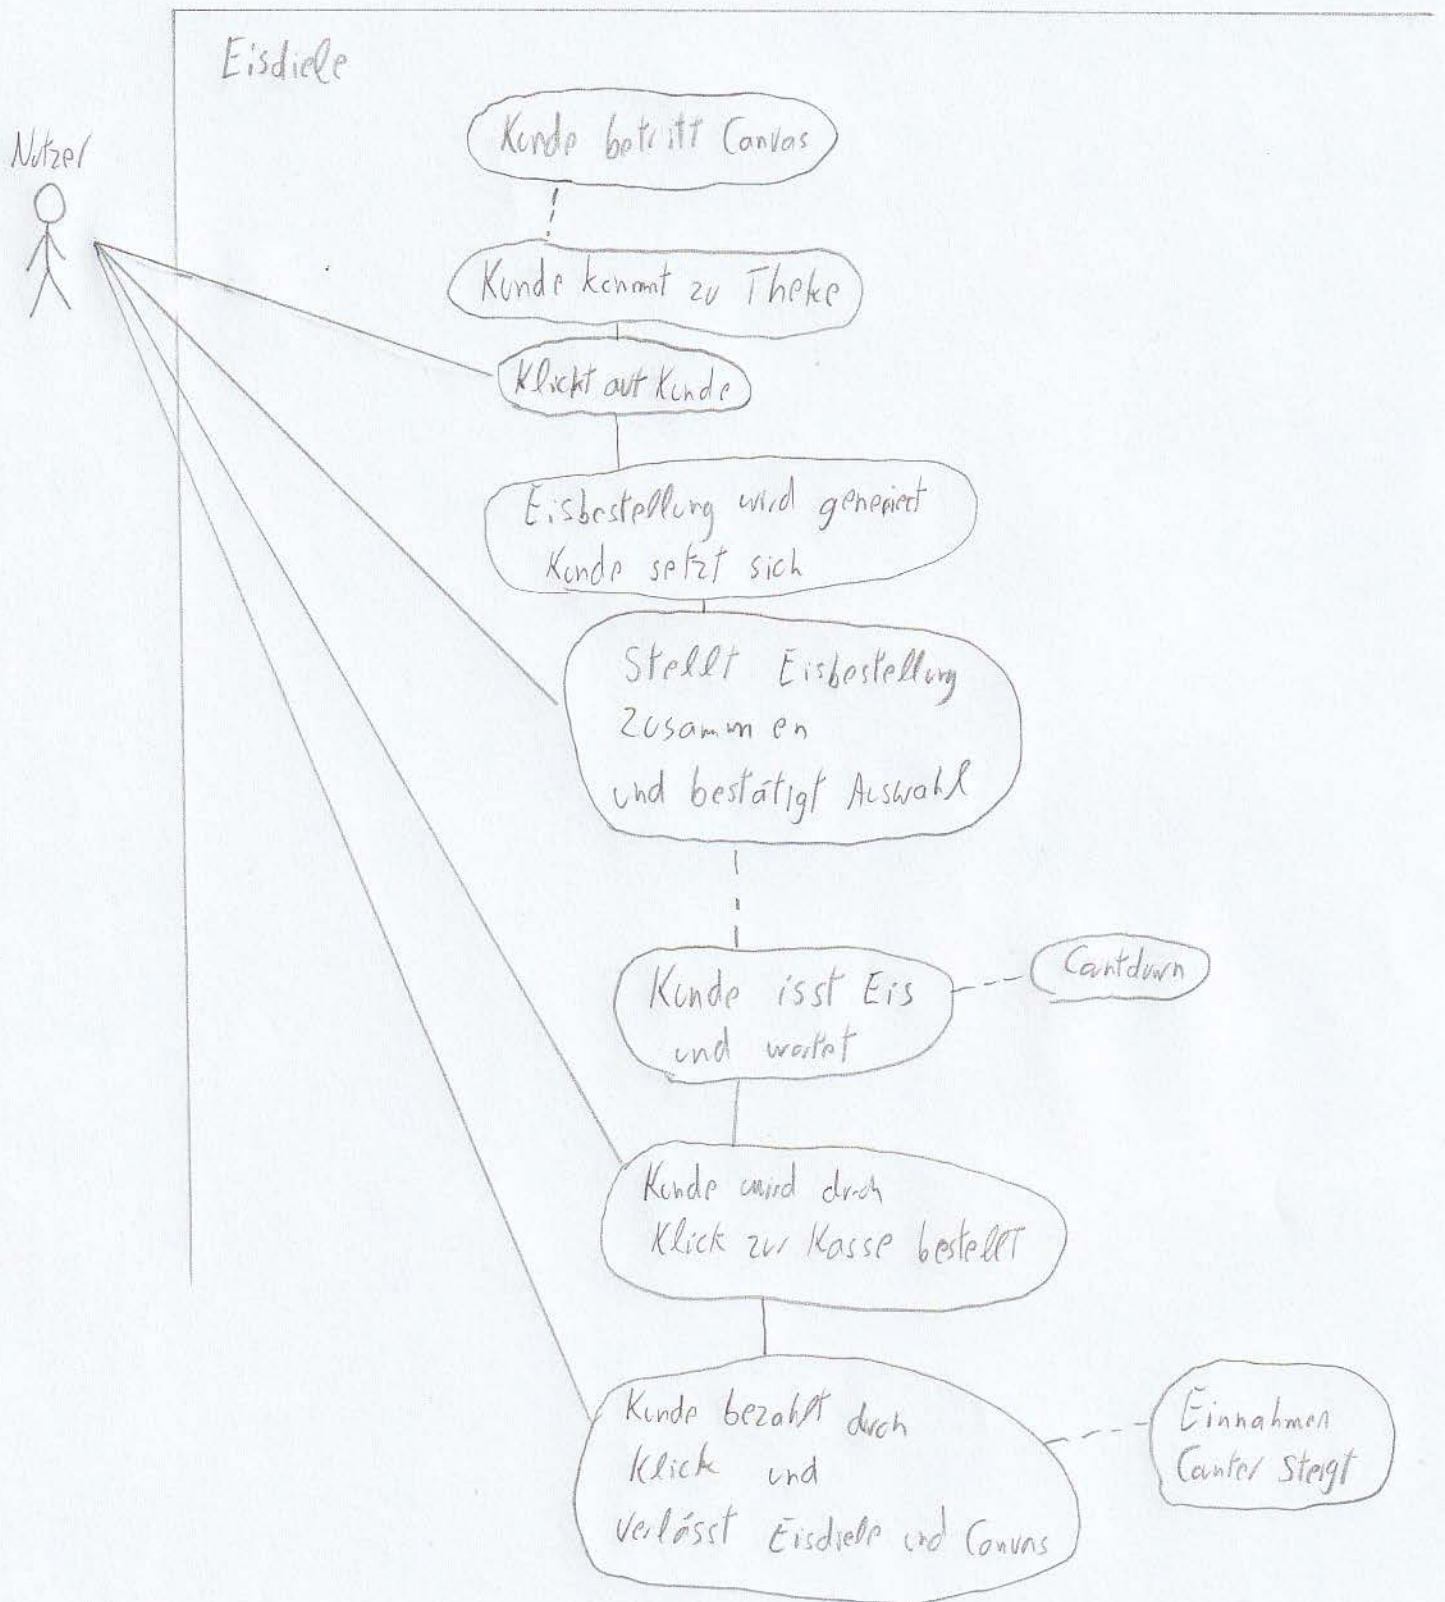 Eisdiele
Nutzer
Kunde betritt Canvas
Kunde kommt zu Theke
Klickt auf Kunde
Eisbestellung wird generiert
Kunde setzt sich
Stellt Eisbestellung
Zusammen
und bestätigt Auswahl
Kunde isst Eis
und wartet
Countdown
Kunde wird durch
Klick zur Kasse bestellt
Kunde bezahlt durch
Klick und
verlässt Eisdiele und Canvas
Einnahmen
Counter Steigt